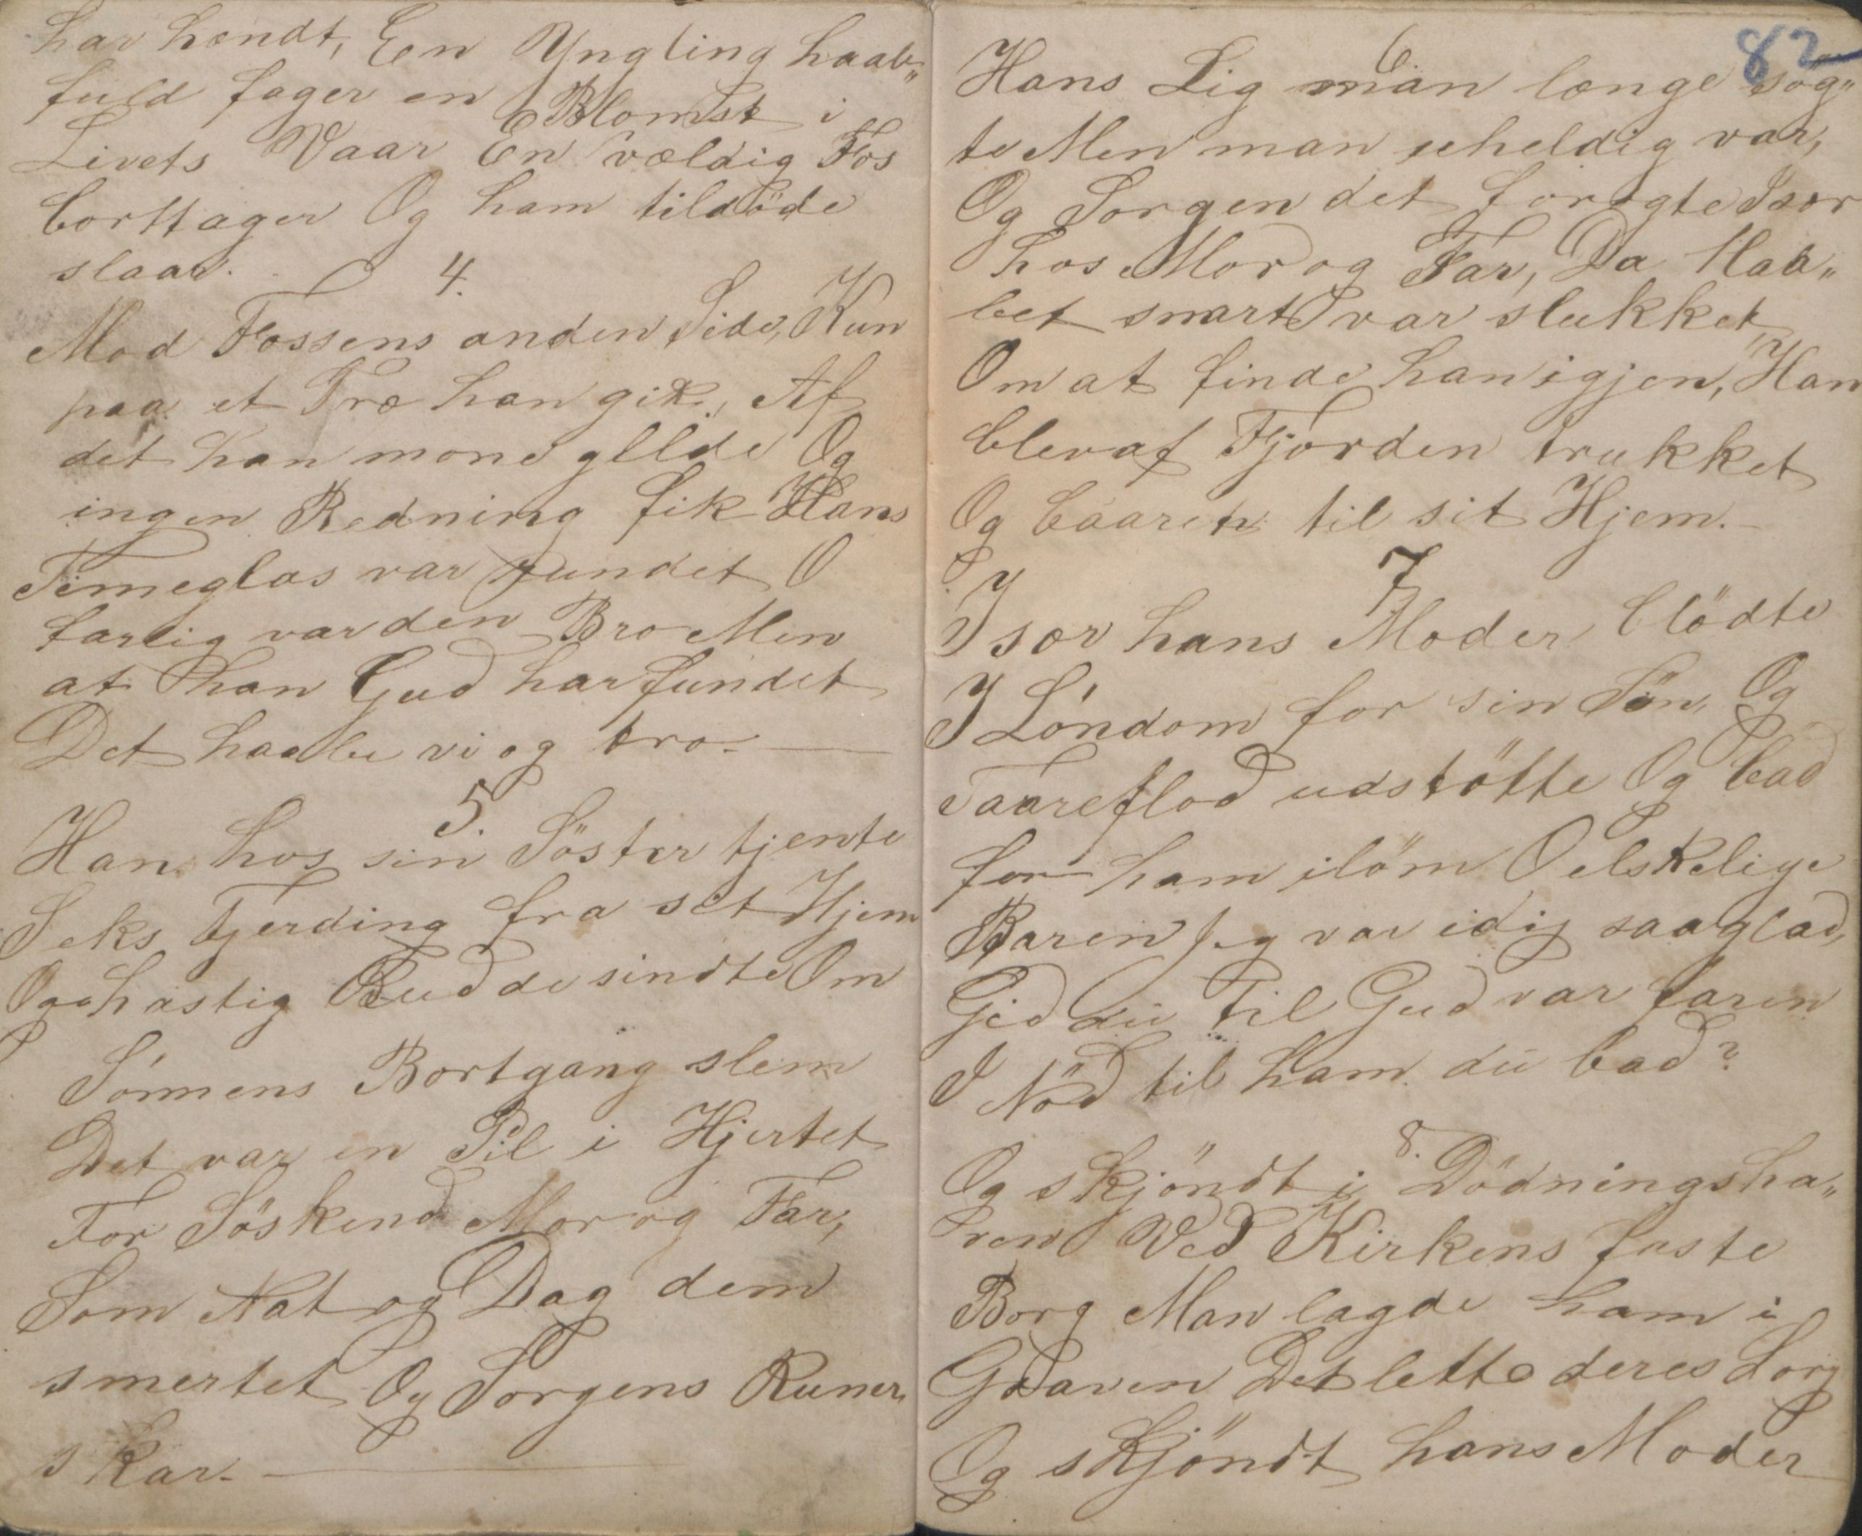 har hændt, Een Yngling haab„
fuld fager en Blomst i
Livets Vaar En vældig Fos
borttager Og ham tildöde
slaar.
4.
Mod Fossens anden Side, Kun
paa et Træ han gik, Af
det han mone gllde Og
ingen Redning fik Hans
Timeglas var rundet O
farlig var den Bro Men
at han Gud har fundet
Det haabe vi og tro.
5.
Han hos sin Söster tjente
Seks Fjerding fra sit Hjem
Og hastig Bud de sindte Om
Sónnens Bortgang slem
Det var en Pil i Hjertet
For Söskend Mor og Far,
Som Nat og Dag dem
smertet Og Sorgens Runer
skar.
82
6
Hans Lig man længe sög„
te Men man uheldig var,
Og Sorgen det forögte Især
hos Mor og Far, Da Haa„
bet snart var slukket,
Om at finde han igjen, Han
blev af Fjorden trukket
Og baaren til sit Hjem.
7
Især hans Moder blödte
I Lóndom for sin Sön, Og
Taareflod udstötte Og bad
for ham ilöm O elskelige
Baren Jeg var idig saa glad,
Gid du til Gud var faren
I Nöd til ham du bad?
8.
Og skjöndt i Dödningsha„
ven Ved Kirkens faste
Borg Man lagde ham i
Graven Det lette deres Sorg
Og skjöndt hans Moder